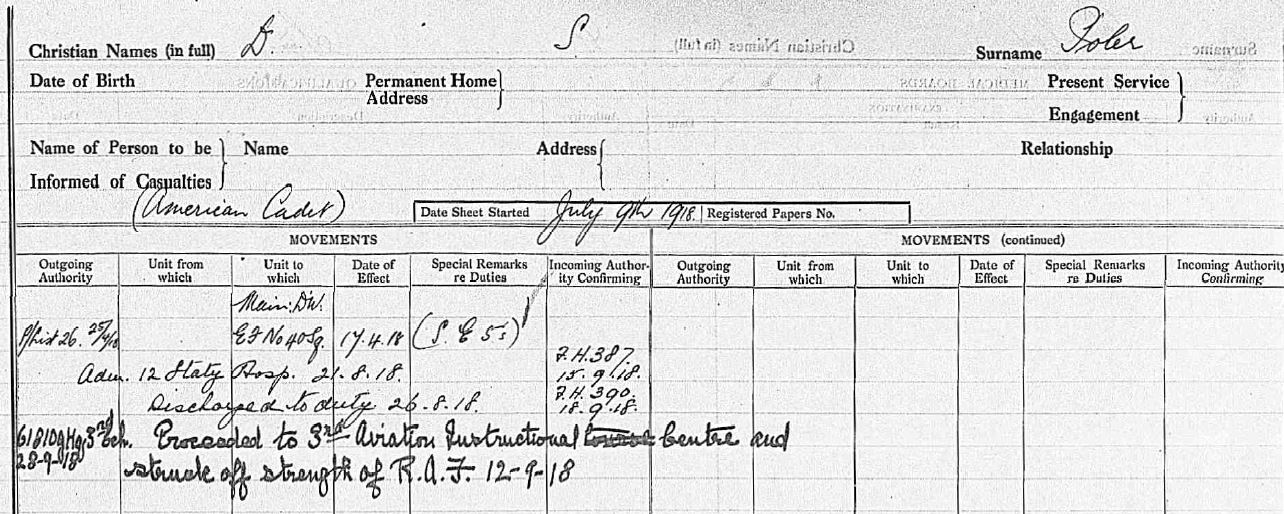 Christian Names (in full) D. S. Surname Poler
Date of Birth Permanent Home Address Present Service Engagement
Name of Person to be Informed of Casualties Name Address Relationship
(American Cadet) Date Sheet Started July 9th 1918. Registered Papers No.
MOVEMENTS MOVEMENTS (continued)
Outgoing Authority Unit from which Unit to which Date of Effect Special Remarks re Duties Incoming Authority Confirming Outgoing Authority Unit from which Unit to which Date of Effect Special Remarks re Duties Incoming Authority Confirming
26. 25/4/18 E F No 40 Sq. 17.4.18 (S. E 5s)
Adm. 12 Staty Hosp. 21.8.18. F.H.387. 15.9.18.
Discharged to duty 26.8.18. F.H.390. 18.9.18.
3rd Ech. Proceeded to 3rd Aviation Instructional Centre and
28-9-18 struck off strength of R.A.F. 12-9-18